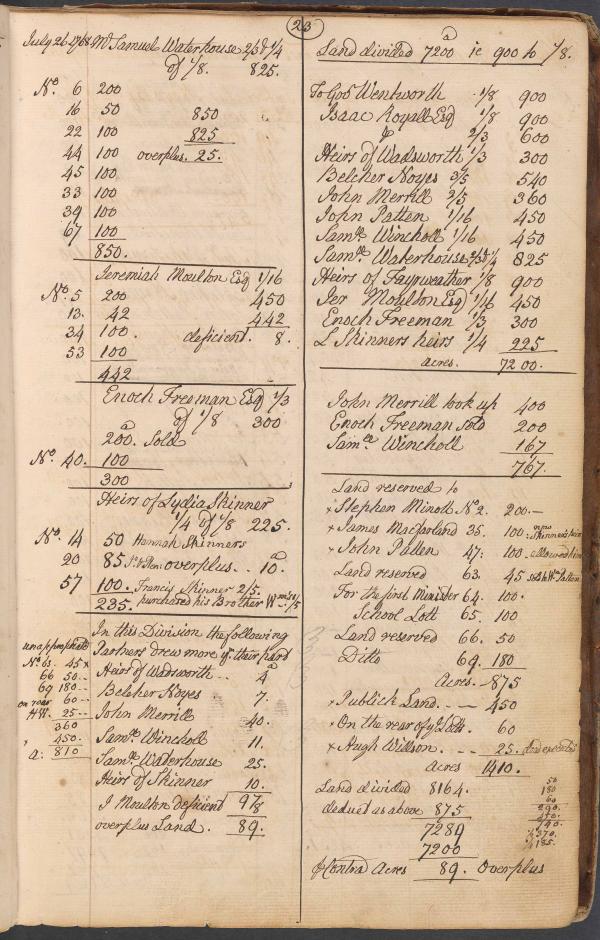 23
July 26 1768 Mr Samuel Waterhouse 2/3 & 1/4
of 1/8. 825.
No. 6 200
16 50 850
22 100 825
44 100 overplus. 25.
45 100
33 100
39 100
67 100
850.
Jeremiah Moulton Esq 1/16
No. 5 200 450
13. 42 442
34 100. deficient. 8.
53 100
442
Enoch Freeman Esq 1/3
of 1/8 300
a
200. Sold
No. 40. 100
300
Heirs of Lydia Skinner
1/4 of 1/8 225.
No. 14 50 Hannah Skinners
20 85. overplus .. 10.
57 100. Francis Skinner 2/5.
235. purchased his Brother Wms 1/5
In this Division the following
Partners drew more yn their part
Heirs of Wadsworth .. 4
Belcher Noyes 7.
John Merrill 40.
Saml. Wincholl 11.
Saml. Waterhouse 25.
Heirs of Skinner 10.
J Moulton deficient 97/8
overplus Land. 89.
unappropriated
No 63. 45 x
66 50 --
69 180 --
on rear 60 --
HW. 25 --
360
x 450.
a: 810
a
Land divided 7200 ie 900 to 1/8.
To Govr Wentworth 1/8 900
Isaac Royall Esq 1/8 900
2/3 600
Heirs of Wadsworth 1/3 300
Belcher Noyes 3/5 540
John Merrill 2/5 360
John Patten 1/16 450
Saml. Wincholl 1/16 450
Saml. Waterhouse 2/3 & 1/4 825
Heirs of Fayrweather 1/8 900
Jer Moulton Esq 1/16 450
Enoch Freeman 1/3 300
L Skinners heirs 1/4 225
acres. 7200.
John Merrill took up 400
Enoch Freeman sold 200
Samll Wincholl 167
767.
Land reserved to
x Stephen Minott No 2. 200.—
x James Macfarland 35. 100:
x John Patten 47: 100. allowed him
Land reserved 63. 45 Wm Patten
For the first Minister 64. 100.
School Lott 65. 100
Land reserved 66. 50
Ditto 69. 180
Acres. 875
x Publick Land. -- 450
x On the rear of ye Lotts. 60
x Hugh Willson. -- 25.
acres 1410.
Land divided 8164.
deduct as above 875
7289
7200
p Contra Acres 89. Overplus
50
180
60
290.
450.
740.
1/2 370.
1/4 185.